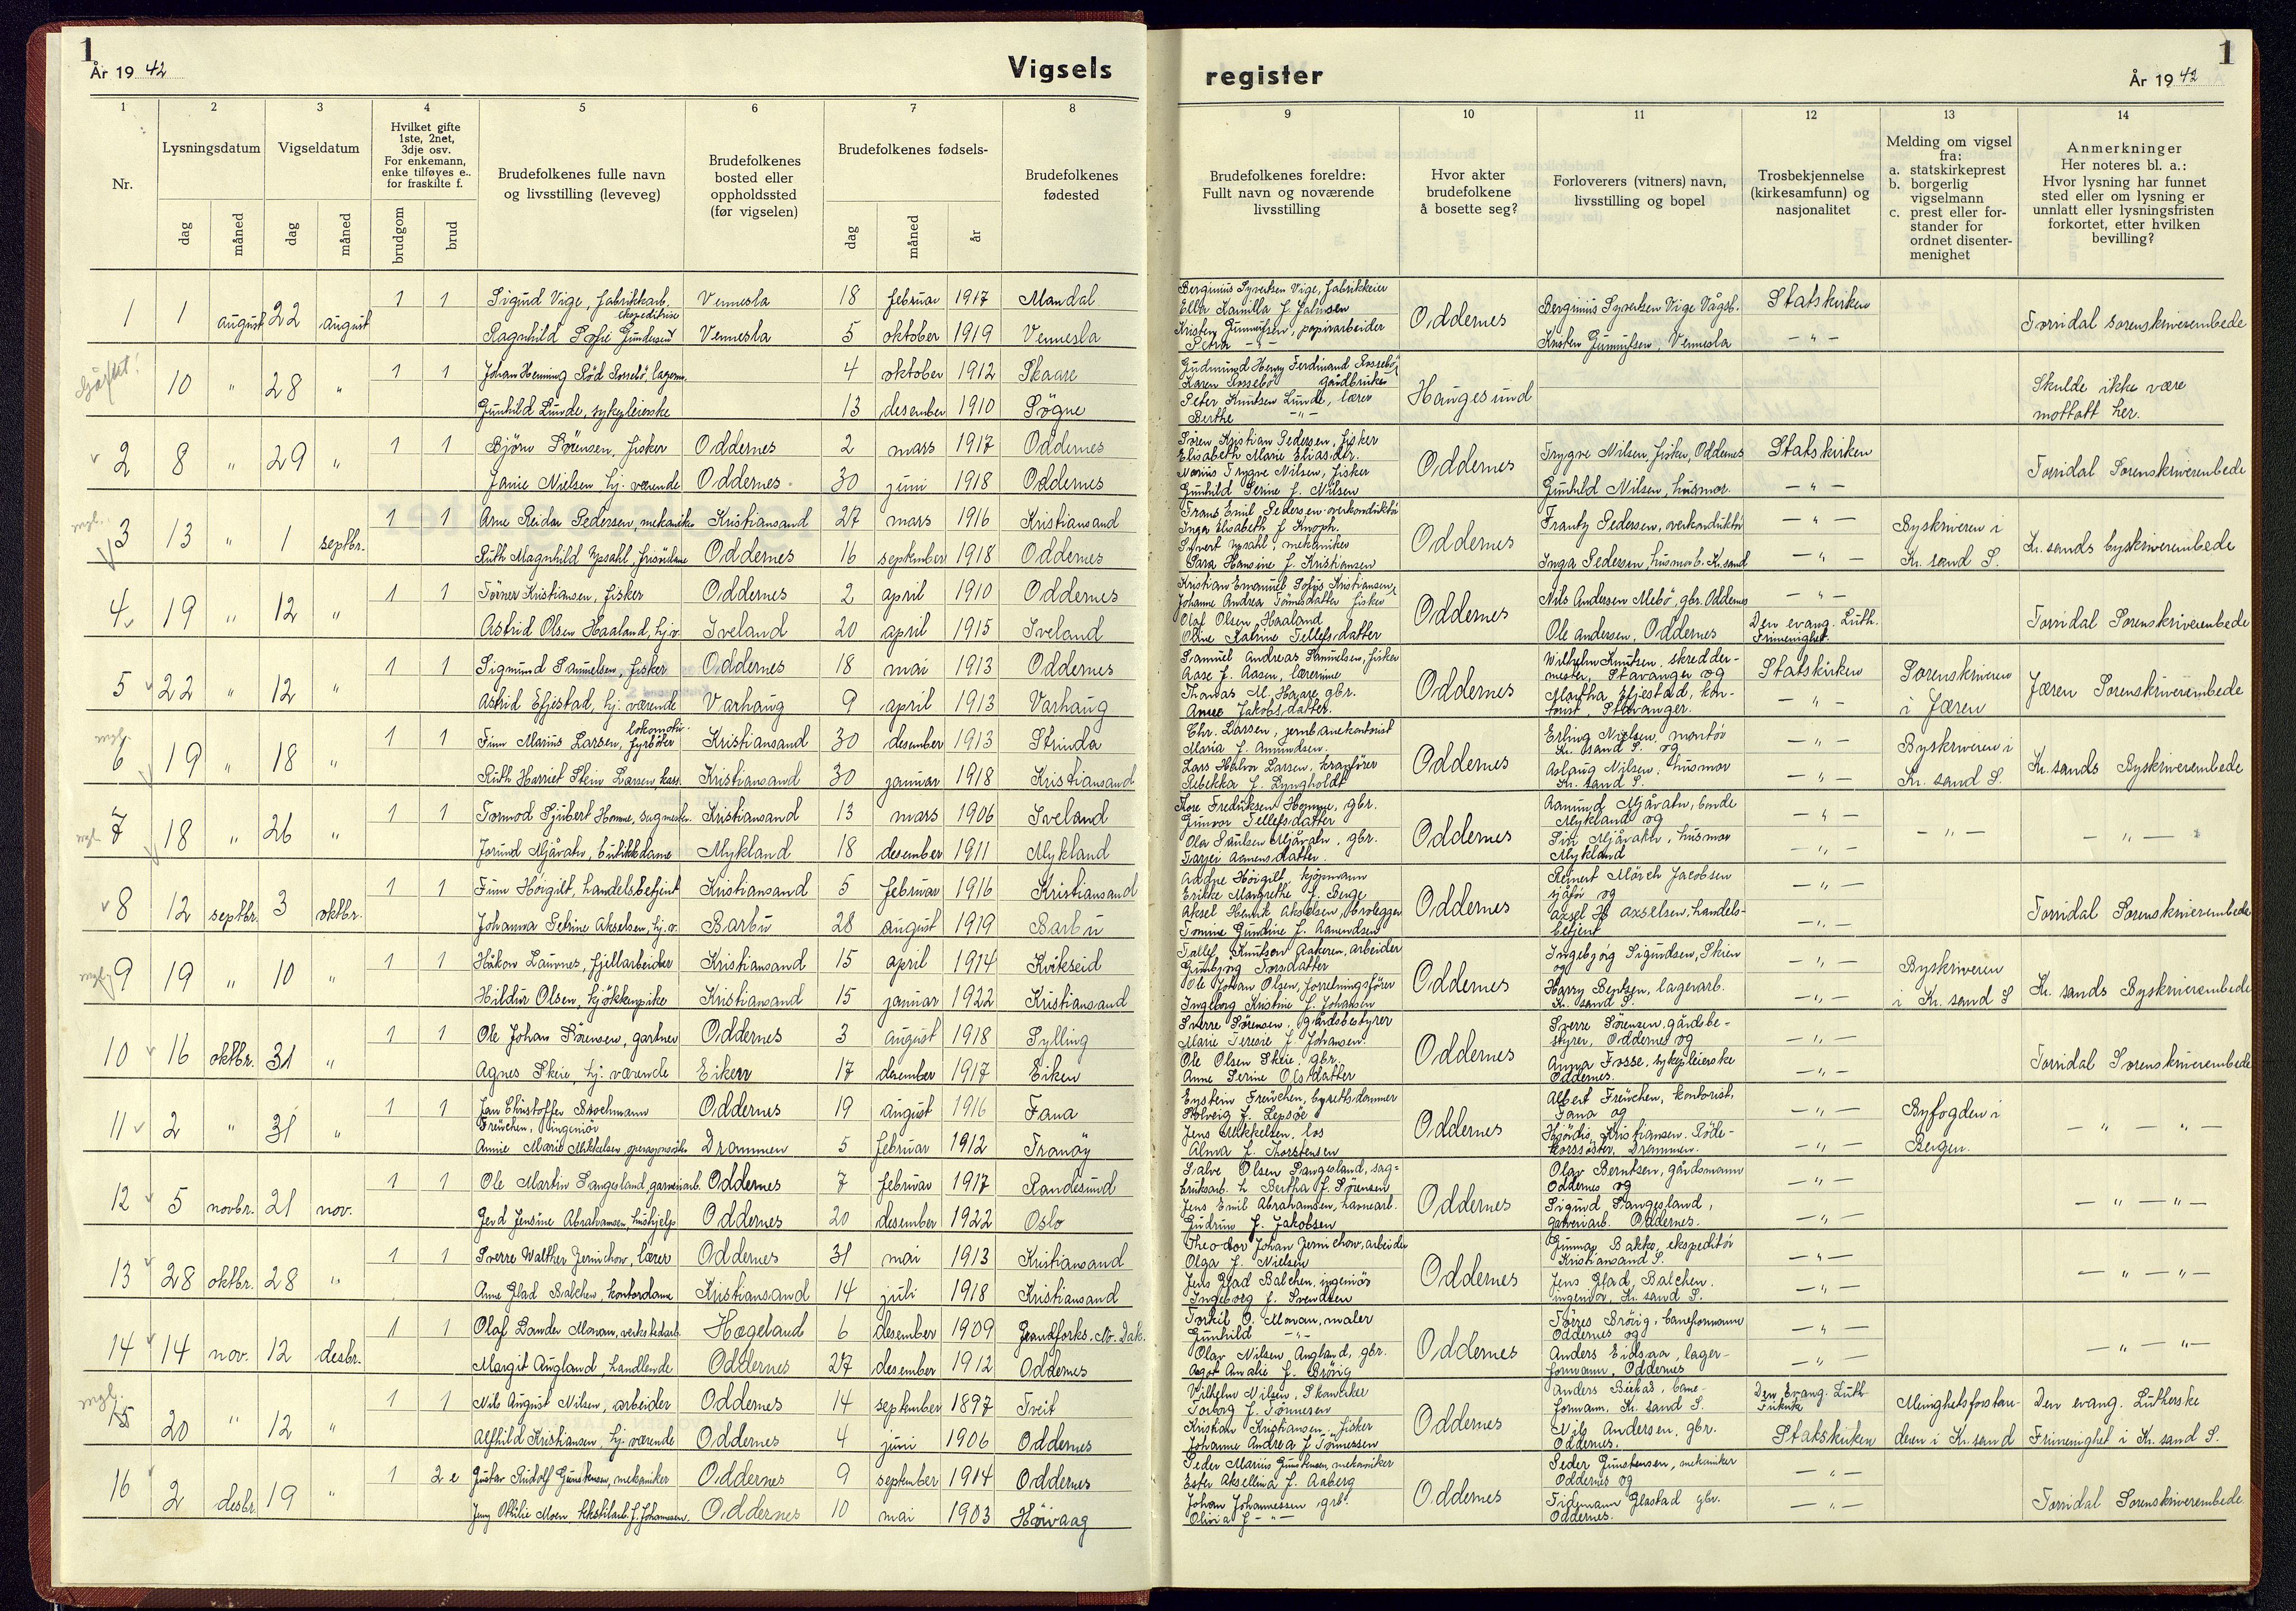 1
År 19 42
Vigsels
register
År 19 42
1
1 2 3 4 5 6 7 8 9 10 11 12 13 14
Nr.
Lysningsdatum
dag
måned
Vigseldatum
dag
måned
Hvilket gifte
1ste, 2net,
3dje osv.
For enkemann,
enke tilføyes e..
for fraskilte f.
brudgom
brud
Brudefolkenes fulle navn
og livsstilling (leveveg)
Brudefolkenes
bosted eller
oppholdssted
(før vigselen)
Brudefolkenes fødsels-
dag
måned
år
Brudefolkenes
fødested
Brudefolkenes foreldre:
Fullt navn og noværende
livsstilling
Hvor akter
brudefolkene
å bosette seg?
Forloverers (vitners) navn,
livsstilling og bopel
Trosbekjennelse
(kirkesamfunn) og
nasjonalitet
Melding om vigsel
fra:
a. statskirkeprest
b. borgerlig
vigselmann
c. prest eller for-
stander for
ordnet disenter-
menighet
Anmerkninger
Her noteres bl. a.:
Hvor lysning har funnet
sted eller om lysning er
unnlatt eller lysningsfristen
forkortet, etter hvilken
bevilling?
1 1 august 22 august 1 1
Sigurd Vige, fabrikkarb. Vennesla 18 februar 1917 Mandal
ekspeditrise
Ragnhild Sofie Gundersen Vennesla 5 oktober 1919 Vennesla
Berginius Syvertsen Vige, fabrikkeier
Elba Kamilla f.
Kristen papirarbeider
Petra - " -
Oddernes
Berginius Syvertsen Vige Vågsb.
Kristen Vennesla
Statskirken
- " -
Torridal sorenskriverembede
10 " 28 " 1 1
Johan Henning Rød Rossebø, 4 oktober 1912 Skaare
Gunhild Lunde, sykepleierske 13 desember 1910 Søgne
Gudmund Henry Ferdinand Rossebø,
Karen Rossebø gårdbruker
Peter Knutsen Lunde, lærer
Berthe - " -
Haugesund
Skulde ikke være
mottatt her.
2 8 " 29 " 1 1
Bjørn Sørensen, fisker Oddernes 2 mars 1917 Oddernes
Janie Nielsen, hj. værende Oddernes 30 juni 1918 Oddernes
Søren Kristian Pedersen, fisker
Elisabeth Marie Eliasdtr.
Marius Trygve Nilsen, fisker
Gunhild Serine f. Nilsen
Oddernes
Trygve Nilsen, fisker, Oddernes
Gunhild Nilsen, husmor.
Statskirken
- " -
Torridal Sorenskriverembede
3 13 " 1 septbr. 1 1
Arne Reidar Pedersen, mekaniker Kristiansand 27 mars 1916 Kristiansand
Ruth Magnhild Ypsahl, frisørdame Oddernes 16 september 1918 Oddernes
Frans Emil Pedersen overkonduktør
Inga Elisabeth f. Knoph.
Syvert Ypsahl, mekaniker
Sara Hansine f. Kristiansen
Oddernes
Frantz Pedersen, overkonduktør
Inga Pedersen, husmor b. Kr.sand
- " -
- " -
Byskriveren i
Kr. sand S.
Kr. sands byskriverembede
4 19 " 12 " 1 1
Tørner Kristiansen, fisker Oddernes 2 april 1910 Oddernes
Astrid Olsen Haaland, hj.v. Iveland 20 april 1915 Iveland
Kristian Emanuel Sofus Kristiansen,
Johanne Andrea Tønnesdatter fisker
Olaf Olsen Haaland
Oline Katrine Tellefsdatter
Oddernes
Nils Andersen Mebø, gbr. Oddernes
Ole Andersen, Oddernes
- " -
Den evang. Luth.
Frimenighet.
Torridal Sorenskriverembede
5 22 " 12 " 1 1
Sigmund Samuelsen, fisker Oddernes 18 mai 1913 Oddernes
Astrid Efjestad, hj. værende Varhaug 9 april 1913 Varhaug
Samuel Andreas Samuelsen, fisker
Aase f. Aasen, lærerinne
Thomas M. Haare gbr.
Anne Jakobsdatter.
Oddernes
Wilhelm Knutsen, skredder-
mester, Stavanger og
Martha Efjestad, kon-
torist, Stavanger.
Statskirken
- " -
Sorenskriveren
i Jæren
Jæren Sorenskriverembede
6 19 " 18 " 1 1
lokomotiv-
Finn Marius Larsen, fyrbøter Kristiansand 30 desember 1913 Strinda
Ruth Harriet Stein Larsen, kass. Kristiansand 30 januar 1918 Kristiansand
Chr. Larsen, jernbanekontorist
Maria f. Amundsen.
Lars Halvor Larsen, kranfører
Rebekka f. Lyngholdt
Oddernes
Erling Nielsen, montør
Kr. sand S. og
Aslaug Nilsen, husmor
Kr. sand S.
- " -
- " -
Byskriveren i
Kr. sand S.
Kr. sands Byskriverembede
7 18 " 26 " 1 1
Tormod Sjubert Homme, sagmester Kristiansand 13 mars 1906 Iveland
Jorund Mjåvatn, butikkdame Mykland 18 desember 1911 Mykland
Tore Fredriksen Homme, gbr.
Gunvor Tellefsdatter
Ola Saulsen Mjåvatn, gbr.
Tarjei Aamensdatter.
Oddernes
Aamund Mjåvatn, bonde
Mykland og
Siri Mjåvatn, husmor
Mykland
- " -
- " -
- " -
- " -
8 12 septbr. 3 oktbr. 1 1
Finn Høigilt, handelsbetjent Kristiansand 5 februar 1916 Kristiansand
Johanna Petrine Akselsen, hj.v. Barbu 28 august 1919 Barbu
Aadne Høigilt, kjøpmann
Erikke Margrethe f. Berge
Aksel Henrik Akselsen, brolegger
Tomine Gundrine f. Aamundsen
Oddernes
Reinert Mörch Jacobsen
sjåfør og
Axel H Axelsen, handels-
betjent
- " -
- " -
Torridal Sorenskriverembede
9 19 " 10 " 1 1
Håkon Launes, fjellarbeider Kristiansand 15 april 1914 Kvikseid
Hildur Olsen, kjøkkenpike Kristiansand 15 januar 1922 Kristiansand
Tallef Knutsen Aakeren, arbeider
Gunbjørg Torsdatter
Ole Johan Olsen, forretningsfører
Ingeborg Kristine f. Johansen
Oddernes
Ingebjørg Sigurdsen, Skien
og
Harry Bentsen, lagerarb.
Kr. sand S.
- " -
- " -
Byskriveren
i Kr. sand S
Kr. sands Byskriverembede
10 16 oktbr. 31 " 1 1
Ole Johan Sørensen, gartner Oddernes 3 august 1918 Sylling
Agnes Skeie, hj. værende Eiken 17 desember 1917 Eiken
Sverre Sørensen, gårdsbestyrer
Marie Teresie f. Johansen.
Ole Olsen Skeie, gbr.
Anne Serine Olsdatter
Oddernes
Sverre Sørensen, gårdsbe-
styrer, Oddernes og
Anna Fosse, sykepleierske
Oddernes.
- " -
- " -
Torridal Sorenskriverembede
11 2 " 31 " 1 1
Jan Christoffer Brochmann Oddernes 19 august 1916 Fana
Freuchen, ingeniør
Annie Marie Mikkelsen, operasjonssøster Drammen 5 februar 1912 Tranøy
Eystein Freuchen, byrettsdommer
Solveig f. Lepsøe
Jens Mikkelsen, los
Alma f. Thorstensen
Oddernes
Albert Freuchen, kontorist,
Fana og
Hjørdis Kristiansen. Røde-
korssøster, Drammen.
- " -
- " -
Byfogden i
Bergen.
- " - " -
12 5 novbr. 21 nov. 1 1
Ole Martin Sangesland, garveriarb. Oddernes 7 februar 1917 Randesund
Gerd Jensine Abrahamsen, hushjelp Oddernes 20 desember 1922 Oslo
Salve Olsen Sangesland, sag-
bruksarb. h. Bertha f. Sørensen
Jens Emil Abrahamsen, havnearb.
Gudrun f. Jakobsen
Oddernes
Olav Berntsen, gårdsmann
Oddernes og
Sigurd Sangesland,
garveriarb. Oddernes.
- " -
- " -
- " - " -
13 28 oktbr. 28 " 1 1
Sverre Walther Jernichow, lærer Oddernes 31 mai 1913 Kristiansand
Anne Glad Balchen, kontordame Kristiansand 14 juli 1918 Kristiansand
Theodor Johan Jernichow, arbeider
Olga f. Nielsen
Jens Glad Balchen, ingeniør
Ingeborg f. Svendsen
Oddernes
Gunnar Bakke, ekspeditør
Kristiansand S.
Jens Glad Balchen.
ingeniør, Kr. sand S.
- " -
- " -
- " - " -
14 14 nov. 12 desbr. 1 1
Olaf Lander Mowan, verkstedarb. Hægeland 6 desember 1909 Grandforks. No. Dak.
Margit Augland, handlende Oddernes 27 desember 1912 Oddernes
Torkil O. Mowan, maler
Gunhild - " -
Olav Nilsen Augland, gbr.
Agot Amalie f. Brørig
Oddernes
Tørres Brørig, baneformann
Oddernes og
Anders Eidsaa, lager-
formann, Oddernes
- " -
- " -
- " - " -
15 20 " 12 " 1 1
Nils August Nilsen, arbeider Oddernes 14 september 1897 Tveit
Alfhild Kristiansen, hj. værende Oddernes 4 juni 1906 Oddernes
Vilhelm Nilsen, Skomaker
Torborg f. Tønnesen
Kristian Kristiansen, fisker
Johanne Andrea f. Tønnessen
Oddernes
Anders Birkas, bane-
formann, Kr. sand S.
Nils Andersen, gbr.
Oddernes.
Den Evang. Luth
Frikirke
Statskirken
Menighetsforstan-
deren i Kr.sand
Den evang. Lutherske
Frimenighet i Kr. sand S.
16 2 desbr. 19 " 1 2 e
Gustav Rudolf Gunstensen, mekaniker Oddernes 9 september 1914 Oddernes
Jenny Othilie Moen, tekstilarb. f. Johannesen. Oddernes 10 mai 1903 Høivaag
Peder Marius Gunstensen, mekaniker
Ester Aksellina f. Aaberg
Johan Johannessen, grb.
Olivia f. - " -
Oddernes
Peder Gunstensen, mekaniker
Oddernes og
Tidemann Glastad gbr.
Oddernes.
- " -
- " -
Torridal Sorenskriverembede.